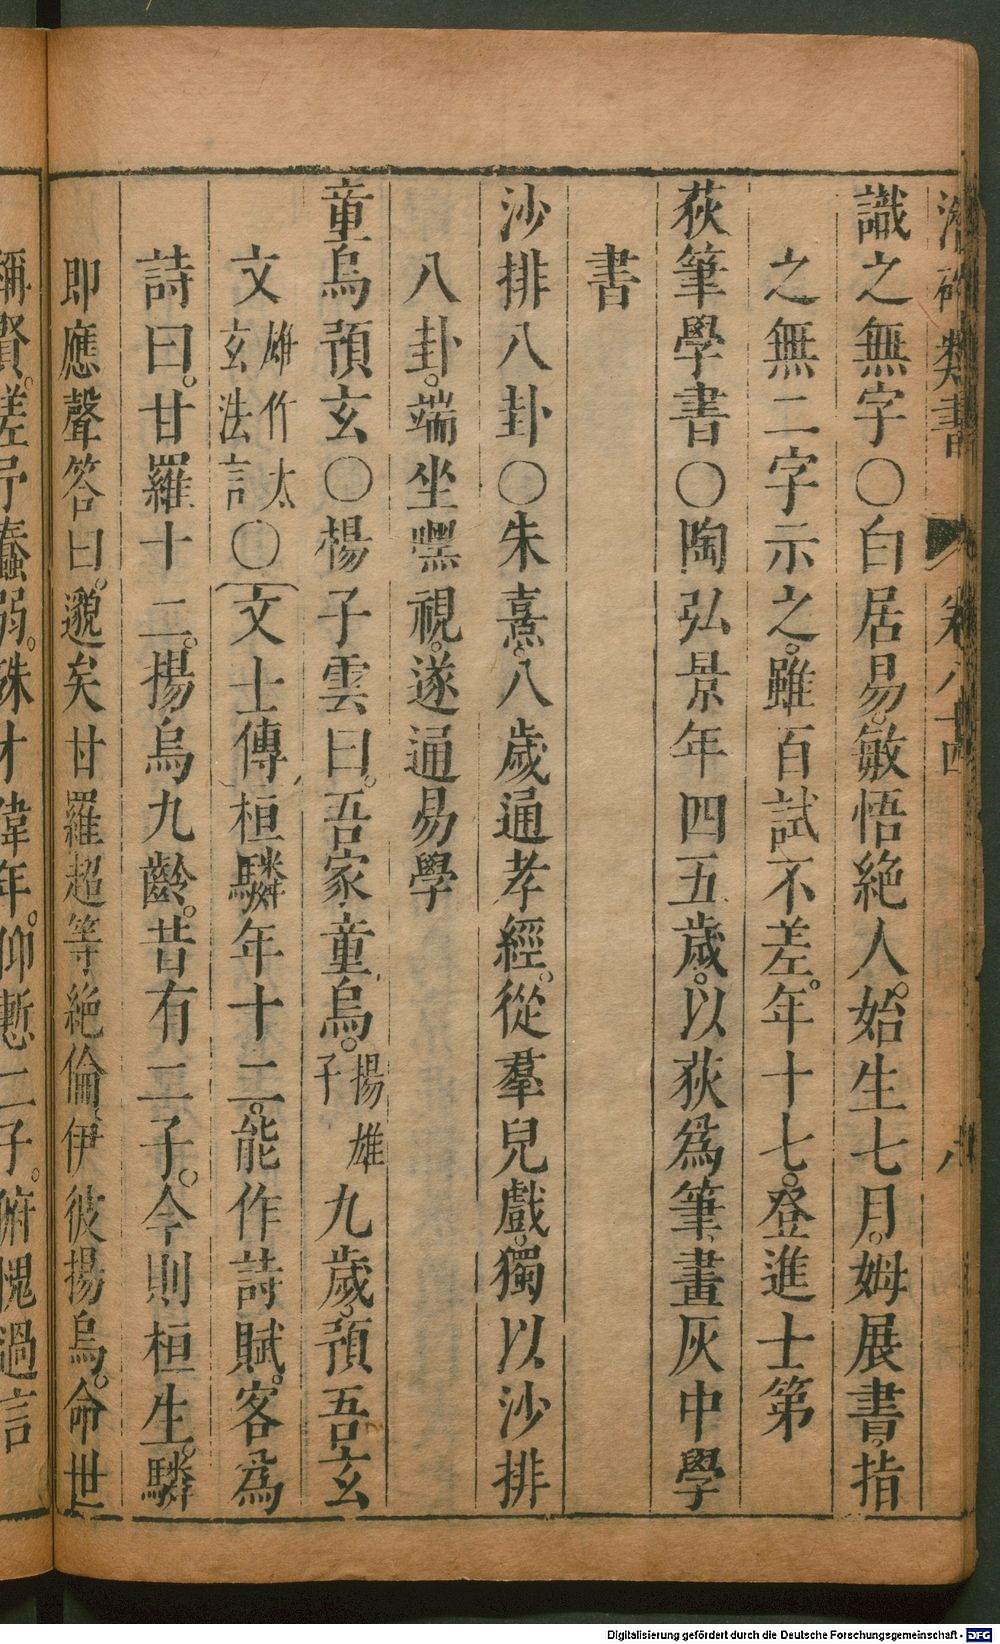 類書 卷八十四 八
識之無字○白居易敏悟絶人。始生七月。姆展書。指
之無二字示之。雖百試不差。年十七。登進士第
荻筆學書○陶弘景年四五歲。以荻爲筆畫灰中學
書
沙排八卦○朱熹八歲通孝經。從羣兒戲。獨以沙排
八卦。端坐嘿視。遂通易學
童烏預玄○楊子雲曰。吾家童烏。揚雄子九歲預吾玄
文雄作太玄法言○文士傳桓驎年十二。能作詩賦。客爲
詩曰。甘羅十二。揚烏九齡。昔有二子。今則桓生。驎
即應聲答曰。邈矣甘羅超等絶倫伊彼揚烏。命世
稱賢。嗟予蠢弱。殊才偉年。仰慙二子。俯愧過言
Digitalisierung gefördert durch die Deutsche Forschungsgemeinschaft - DFG